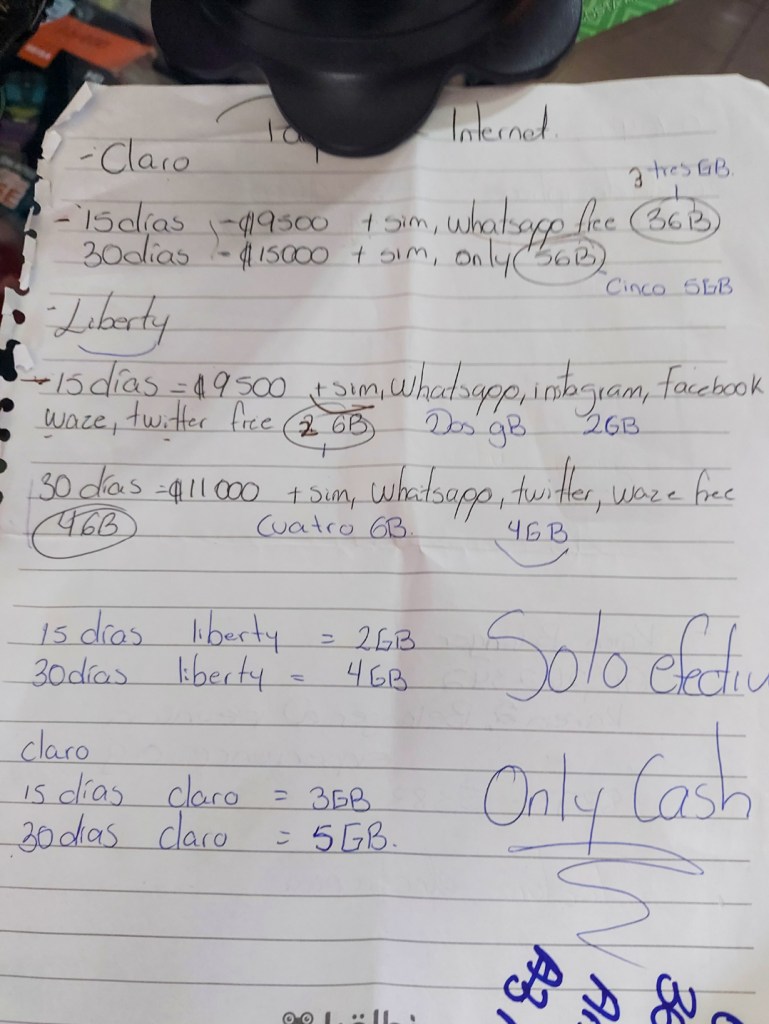 Internet.
- Claro
3 tres GB.
- 15 días - ₡9500 + sim, whatsapp free 3GB
30 días - ₡15000 + sim, only 5GB
Cinco 5GB
- Liberty
- 15 días = ₡9500 + sim, Whatsapp, instagram, facebook
waze, twitter free 2 GB Dos gB 2GB
30 días = ₡11000 + sim, Whatsapp, twitter, waze free
4GB Cuatro GB. 4GB
15 días liberty = 2GB
30 días liberty = 4GB
Solo efectiv
claro
15 días claro = 3GB
30 dias claro = 5GB.
Only Cash